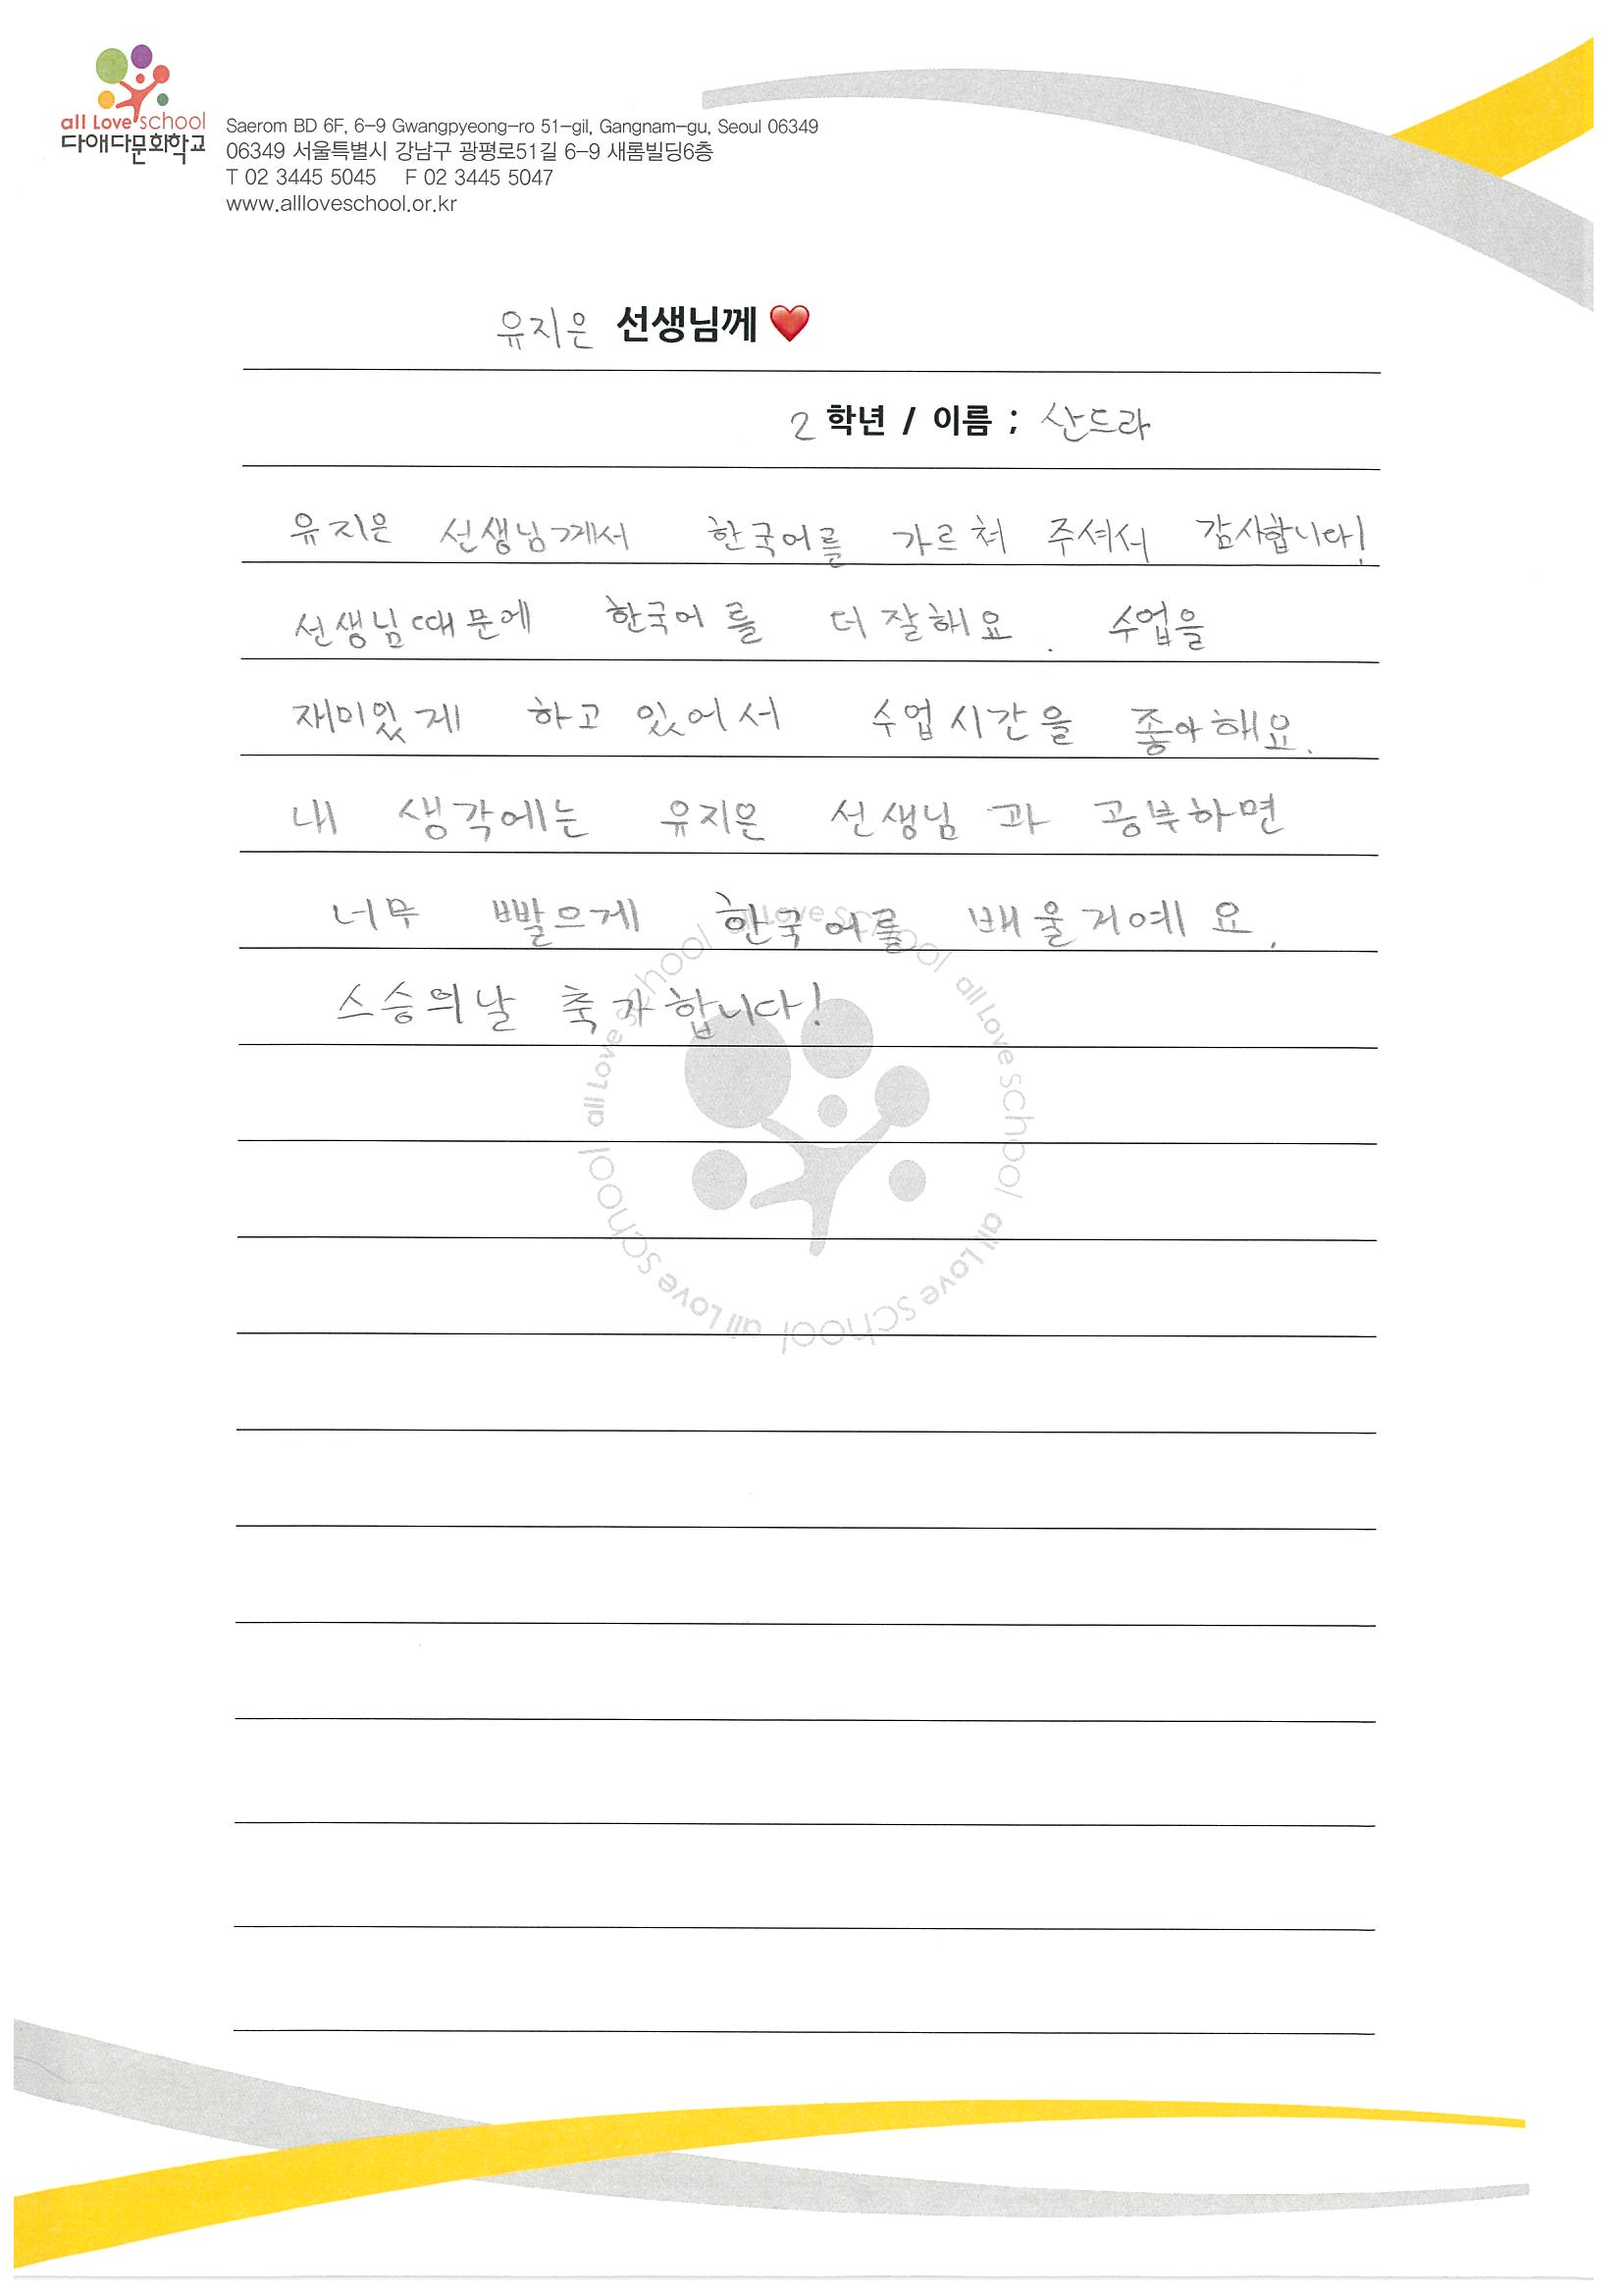 all Love school
다애다문화학교
Saerom BD 6F, 6-9 Gwangpyeong-ro 51-gil, Gangnam-gu, Seoul 06349
06349 서울특별시 강남구 광평로51길 6-9 새롬빌딩6층
T 02 3445 5045 F 02 3445 5047
www.allloveschool.or.kr
유지은 선생님께❤️
2 학년 / 이름 ; 산드라
유지은 선생님께서 한국어를 가르쳐 주셔서 감사합니다!
선생님때문에 한국어를 더 잘해요. 수업을
재미있게 하고 있어서 수업시간을 좋아해요.
내 생각에는 유지은 선생님과 공부하면
너무 빨으게 한국어를 배울거예요.
스승의날 축가합니다!
all Love school all Love school all Love school all Love school all Love school all Love school